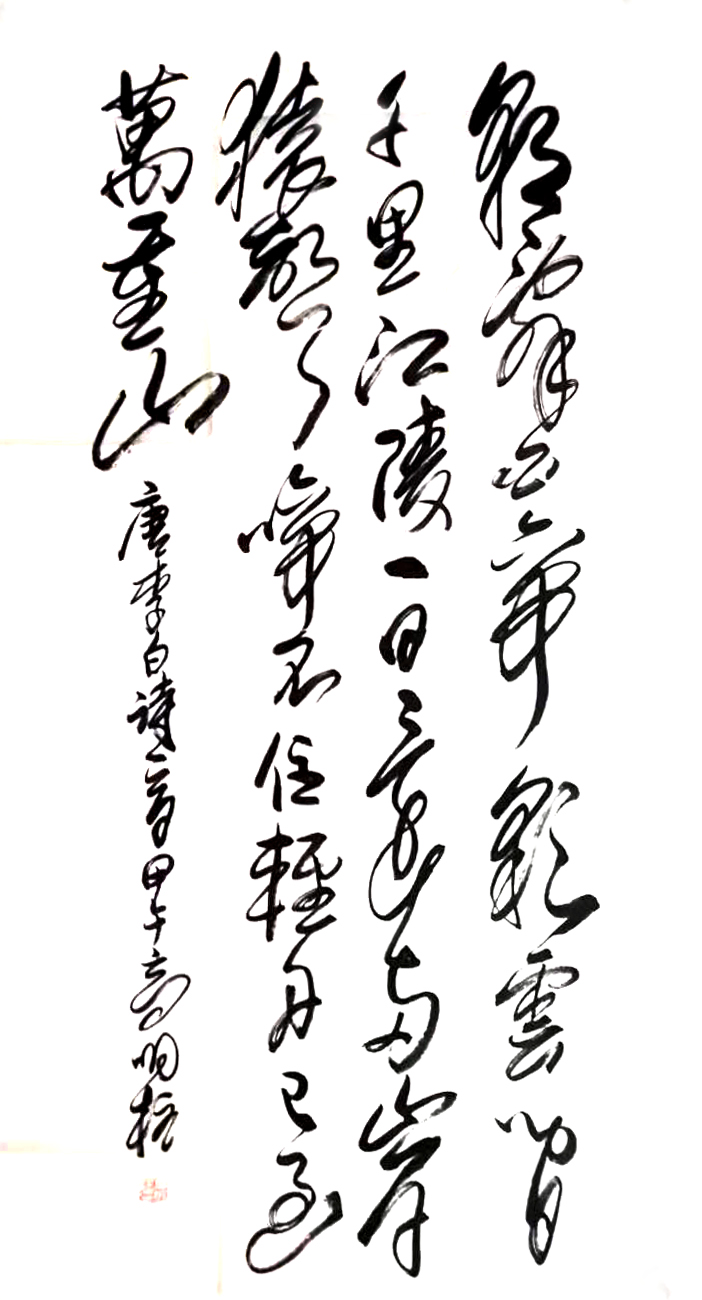 朝辭白帝彩雲間
千里江陵一日還兩岸
猿聲啼不住輕舟已過
萬重山
唐李白詩一首甲午高明